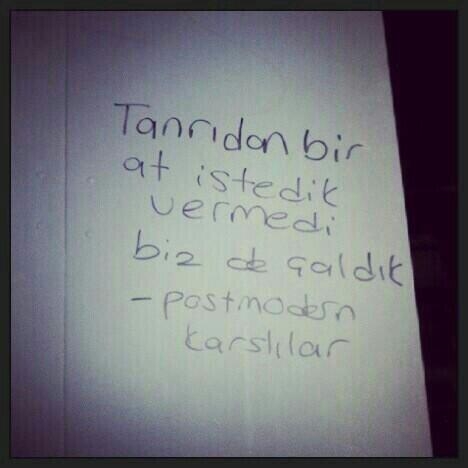 Tanrıdan bir
at istedik
vermedi
biz de çaldık
- postmodern
karslılar